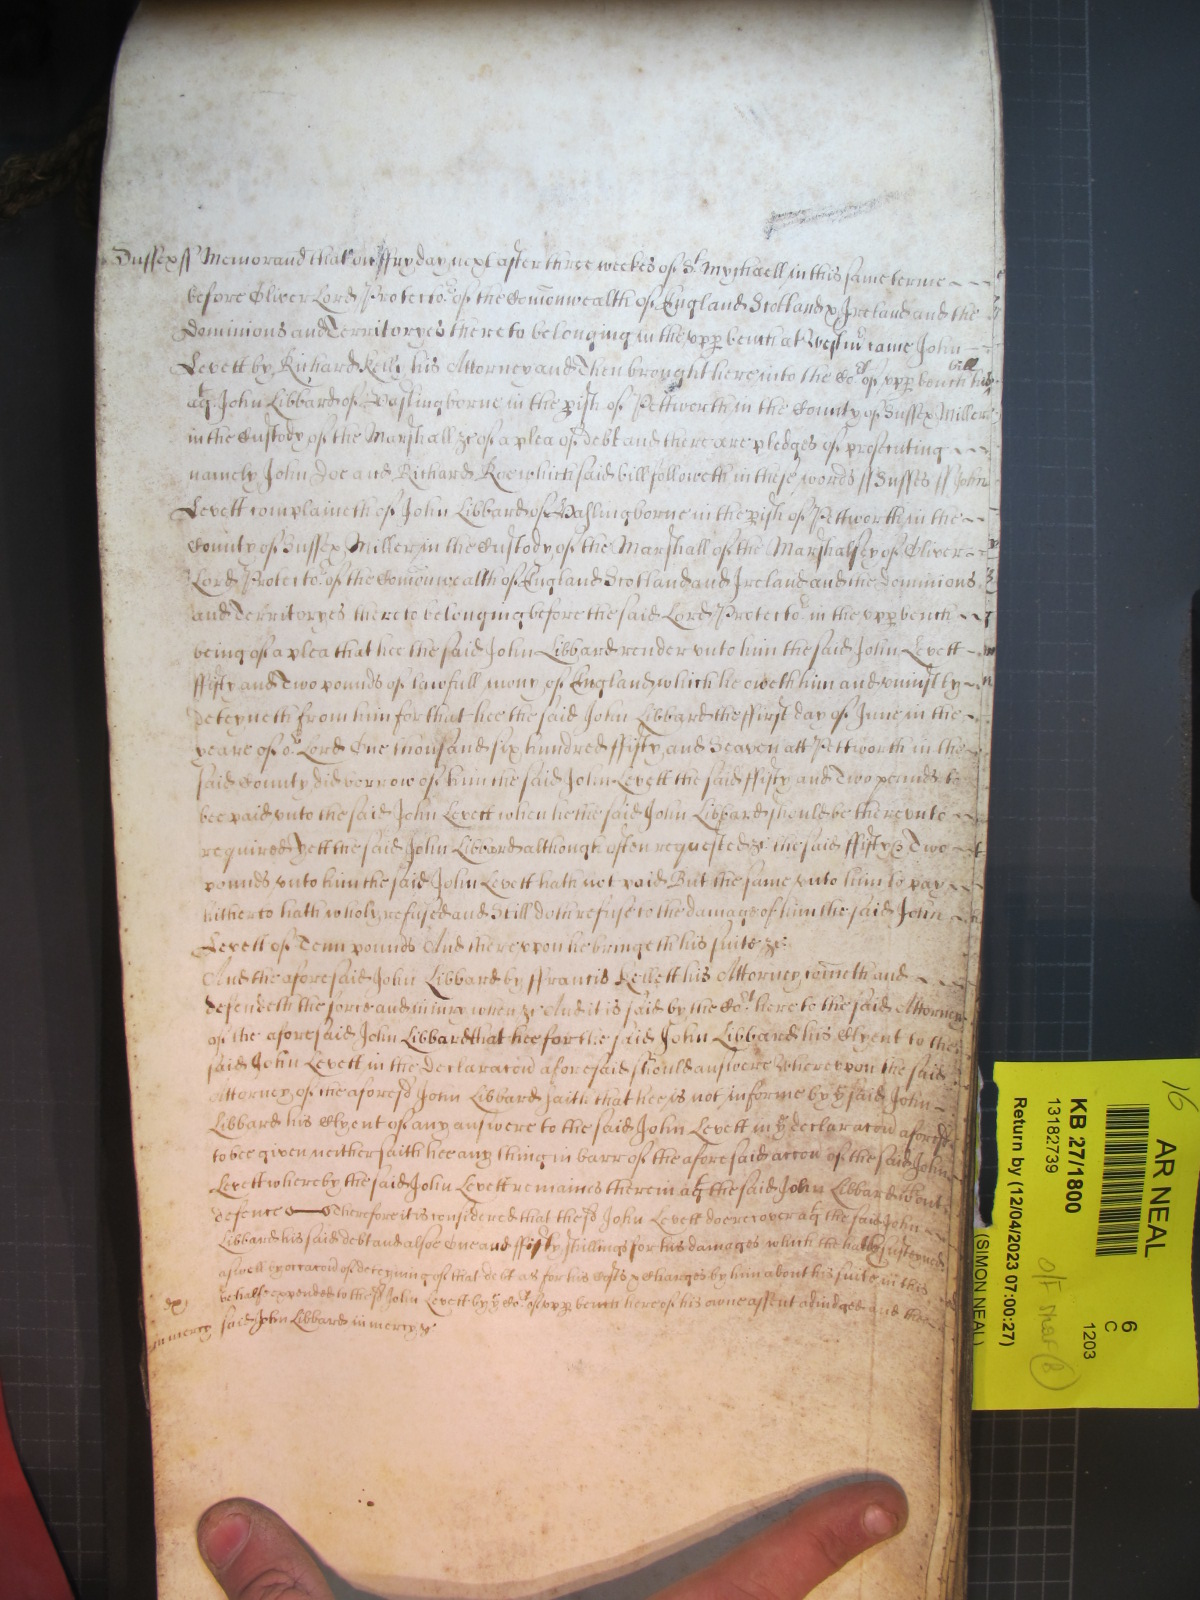 Sussex ss Memorand that on ffryday next after three weekes of St Mychaell in this same terme
before Oliver Lord Protector of the Comonwealth of England Scotland & Ireland and the
Dominions and Territoryes thereto belonging in the vpp bench at Westm came John
Levett by Richard his Attorney and Then brought here into the Cort of vpp bench his bill
agt John Libbard of in the pish of Pettworth in the County of Sussex Miller
in the Custody of the Marshall &c of a plea of Debt and there are pledges of prosecuting
namely John Doe and Richard Roe which said bill followeth in these words ss Sussex ss John
Levett complaineth of John Libbard of in the pish of Pettworth in the
County of Sussex Miller in the Custody of the Marshall of the Marshalsey of Oliver
Lord Protector of the Comonwealth of England Scotland and Ireland and the Dominions
and Territoryes thereto belonging before the said Lord Protector in the vpp bench
being of a plea that hee the said John Libbard render vnto him the said John Levett
ffifty and Two pounds of lawfull mony of England which he oweth him and vniustly
deteyneth from him for that hee the said John Libbard the ffirst day of June in the
yeare of or Lord One thousand six hundred ffifty and Seaven att Pettworth in the
said County did borrow of him the said John Levett the said ffifty and Two pounds to
bee paid vnto the said John Levett when he the said John Libbard should be therevnto
required Yett the said John Libbard although often requested &c the said ffifty & Two
pounds vnto him the said John Levett hath not paid But the same vnto him to pay
hitherto hath wholy refused and Still doth refuse to the damage of him the said John
Levett of Tenn pounds And therevpon he bringeth his suite &c
And the aforesaid John Libbard by ffrancis Kellett his Attorney cometh and
defendeth the force and iniury when &c And it is said by the Cort here to the said Attorney
of the aforesaid John Libbard that hee for the said John Libbard his Clyent to the
said John Levett in the Declaracon aforesaid should answere Wherevpon the said
Attorney of the aforesd John Libbard saith that hee is not informe by ye said John
Libbard his Clyent of any answere to the said John Levett in ye declaracon aforesd
to bee given neither saith hee any thing in barr of the aforesaid accon of the said John
Levett whereby the said John Levett remaines therein agt the said John Libbard wthout
defence Therefore it is considered that the sd John Levett doe recover agt the said John
Libbard his said debt and alsoe One and ffifty shillings for his damages which he hath susteyned
aswell by occacon of deteyning of that debt as for his Costs & Charges by him about his suite in this
behalfe expended to the sd John Levett by ye Cort of vpp bench here of his owne assent adiudged and the
in mercy said John Libbard in mercy &c
16
AR NEAL
KB 27/1800
13182739
Return by (12/04/2023 07:00:27)
6
C
1203
(SIMON NEAL)